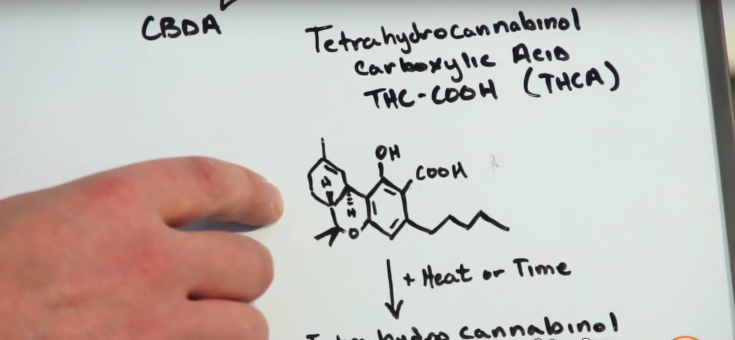 CBDA
Tetrahydrocannabinol
Carboxylic Acid
THC-COOH (THCA)
OH
COOH
H
H
O
+ Heat or Time
Tetrahydrocannabinol